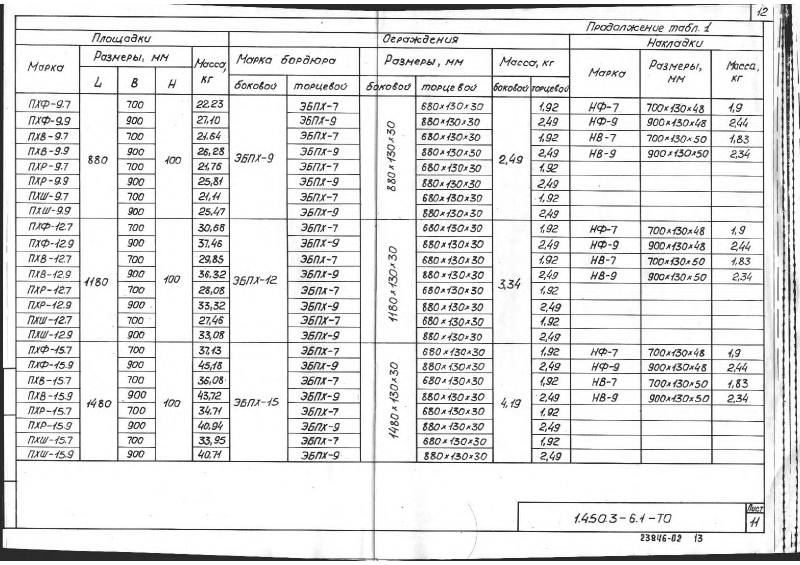 12
Продолжение табл. 1
Площадки Ограждения Накладки
Марка Размеры, мм Масса, кг Марка бордюра Размеры, мм Масса, кг Марка Размеры, мм Масса, кг
L B H боковой торцевой боковой торцевой боковой торцевой
ПХФ-9.7 880 700 100 22.23 ЭБПХ-9 ЭБПХ-7 880×130×30 680×130×30 2,49 1,92 НФ-7 700×130×48 1,9
ПХФ-9.9 900 27,10 ЭБПХ-9 880×130×30 2,49 НФ-9 900×130×48 2,44
ПХВ-9.7 700 21.64 ЭБПХ-7 680×130×30 1,92 НВ-7 700×130×50 1,83
ПХВ-9.9 900 26,28 ЭБПХ-9 880×130×30 2,49 НВ-9 900×130×50 2,34
ПХР-9.7 700 21,76 ЭБПХ-7 680×130×30 1,92
ПХР-9.9 900 25,81 ЭБПХ-9 880×130×30 2,49
ПХШ-9.7 700 21,11 ЭБПХ-7 680×130×30 1,92
ПХШ-9.9 900 25,47 ЭБПХ-9 880×130×30 2,49
ПХФ-12.7 1180 700 100 30,68 ЭБПХ-12 ЭБПХ-7 1180×130×30 680×130×30 3,34 1,92 НФ-7 700×130×48 1,9
ПХФ-12.9 900 37,46 ЭБПХ-9 880×130×30 2,49 НФ-9 900×130×48 2,44
ПХВ-12.7 700 29,85 ЭБПХ-7 680×130×30 1,92 НВ-7 700×130×50 1,83
ПХВ-12.9 900 36,32 ЭБПХ-9 880×130×30 2,49 НВ-9 900×130×50 2,34
ПХР-12.7 700 28,08 ЭБПХ-7 680×130×30 1,92
ПХР-12.9 900 33,32 ЭБПХ-9 880×130×30 2,49
ПХШ-12.7 700 27,46 ЭБПХ-7 680×130×30 1,92
ПХШ-12.9 900 33,08 ЭБПХ-9 880×130×30 2,49
ПХФ-15.7 1480 700 100 37,13 ЭБПХ-15 ЭБПХ-7 1480×130×30 680×130×30 4,19 1,92 НФ-7 700×130×48 1,9
ПХФ-15.9 900 45,18 ЭБПХ-9 880×130×30 2,49 НФ-9 900×130×48 2,44
ПХВ-15.7 700 36,08 ЭБПХ-7 680×130×30 1,92 НВ-7 700×130×50 1,83
ПХВ-15.9 900 43,72 ЭБПХ-9 880×130×30 2,49 НВ-9 900×130×50 2,34
ПХР-15.7 700 34,71 ЭБПХ-7 680×130×30 1,92
ПХР-15.9 900 40.94 ЭБПХ-9 880×130×30 2,49
ПХШ-15.7 700 33,95 ЭБПХ-7 680×130×30 1,92
ПХШ-15.9 900 40.71 ЭБПХ-9 880×130×30 2,49
1.450.3-6.1-ТО
Лист
11
23846-02 13